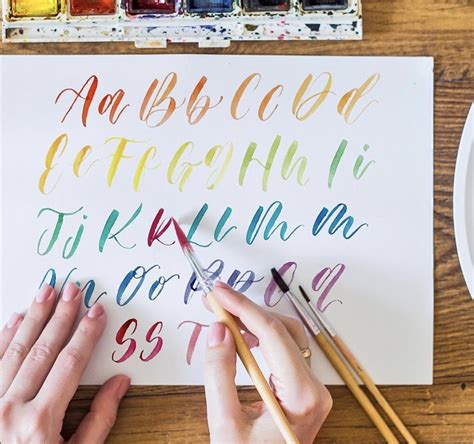 Aa Bb Cc Dd
Ee Ff Gg Hh Ii
Jj K K Ll Mm
Nn Oo Pp Qq
Ss T